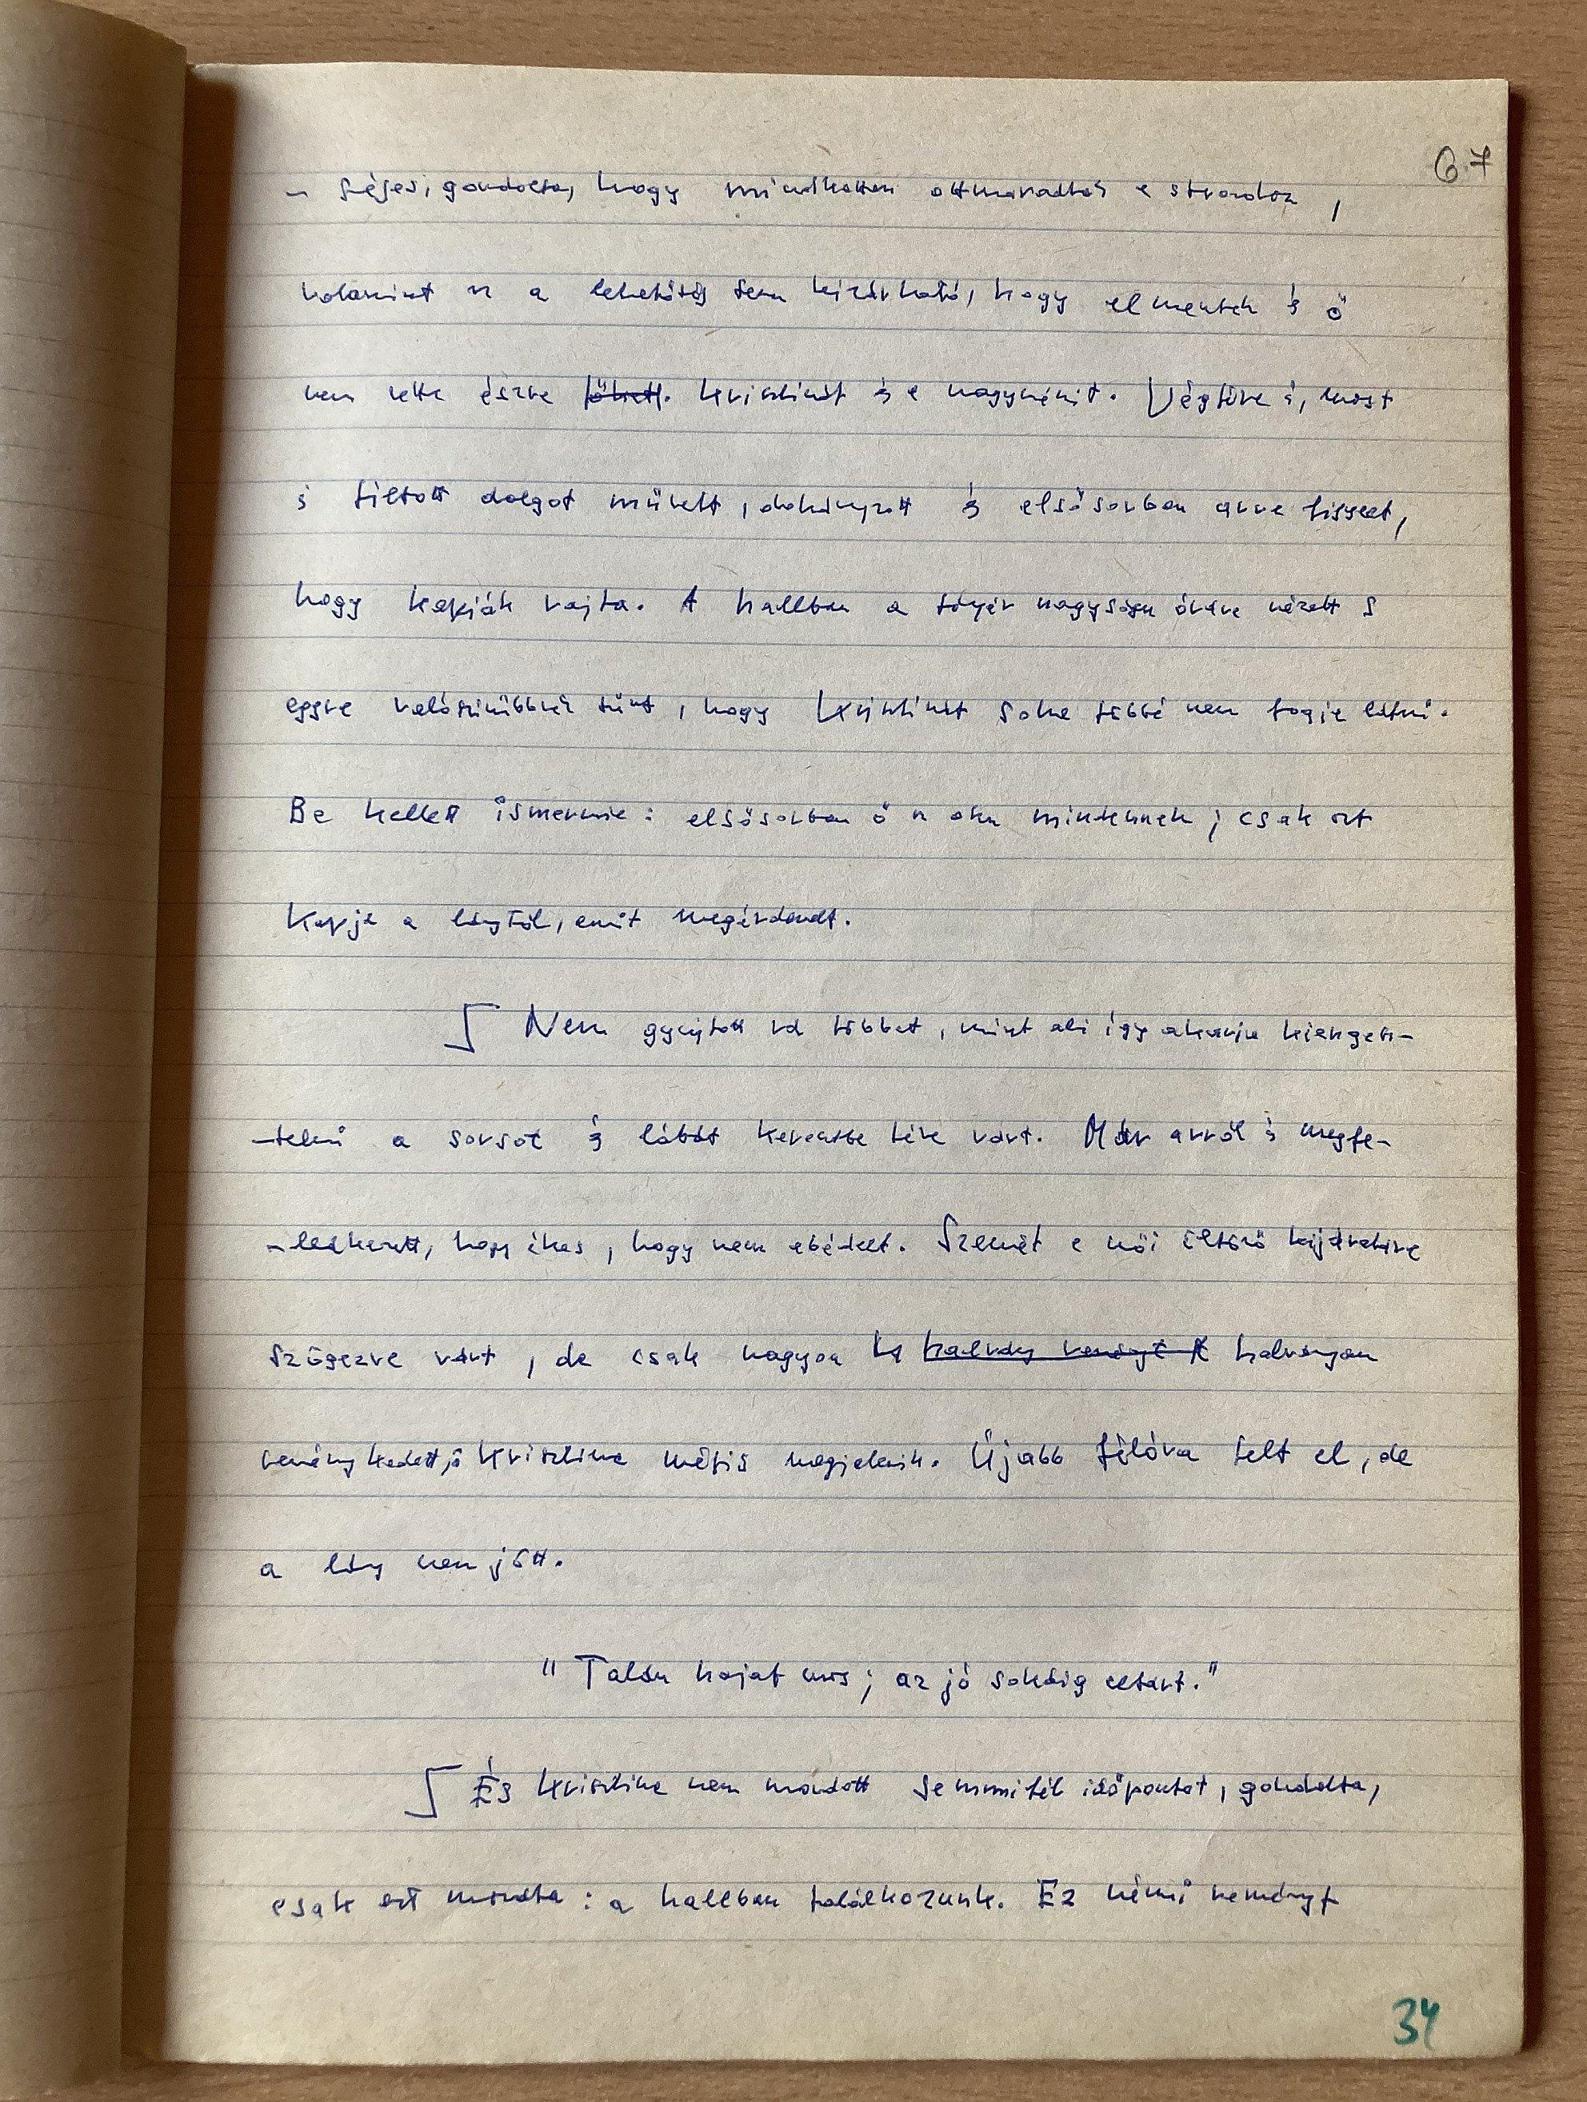 67
- séges, gondolta, hogy mindketten ottmaradtak a strandon,
valamint az a lehetőség sem kizárható, hogy elmentek és ő
nem vette észre Krisztinát és a nagynénit. Végtére is, most
is tiltott dolgot művelt, dohányzott és elsősorban arra figyelt,
hogy kapják rajta. A hallban a tányér nagyságú órára nézett s
egyre valószínűbbnek tűnt, hogy Krisztinát soha többé nem fogja látni.
Be kellett ismernie: elsősorban ő az oka mindennek; csak azt
kapja a lánytól, amit megérdemelt.
Nem gyújtott rá többet, mint aki így akarja kiengesz-
-telni a sorsot és lábát keresztbe téve várt. Már arról is megfe-
-ledkezett, hogy éhes, hogy nem ebédelt. Szemét a női öltöző kijáratára
szögezve várt, de csak nagyon ha halvány reményt halványan
reménykedett, Krisztina mégis megjelenik. Újabb félóra telt el, de
a lány nem jött.
"Talán hajat mos; az jó sokáig eltart."
És Krisztina nem mondott semmiféle időpontot, gondolta,
csak azt mondta: a hallban találkozunk. Ez némi reményt
34